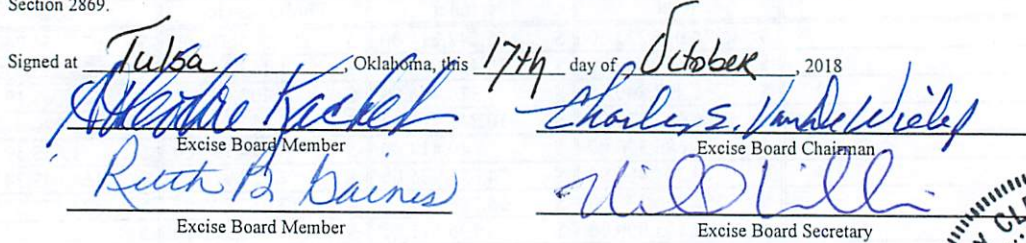 Section 2869.
Signed at Tulsa, Oklahoma, this 17th day of October, 2018
Charles E. VanDeWiele
Excise Board Member Excise Board Chairman
Ruth B Gaines
Excise Board Member Excise Board Secretary